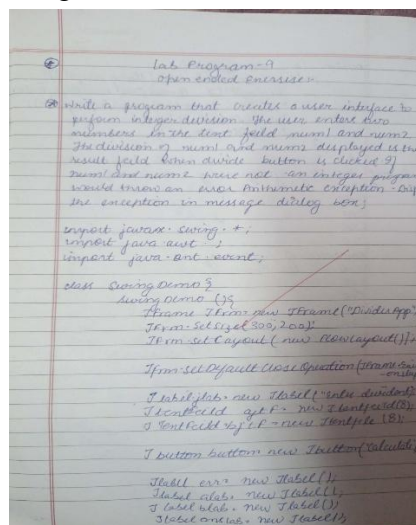 Lab Program-9
open ended exercise:-
Write a program that creates a user interface to
perform integer division. The user enters two
numbers in the text field num1 and num2
The division of num1 and num2 displayed is the
result feild when divide button is clicked If
num1 and num2 were not an integer program
would throw an error Arithmetic exception
the exception in message dialog box;
import javax.swing.*;
import java.awt ;
import java.ant.event;
class SwingDemo {
SwingDemo () {
JFrame Jfrm = new JFrame("DividerApp"
Jfrm.setSize(300, 200);
Jfrm.setLayout(new FlowLayout()
Jfrm.setDefaultCloseOperation(JFrame.
Jlabel jlab = new Jlabel("enter
JtextFeild ajtF = new Jtextfeild(8);
JtextFeild bjtF = new Jtextfile (8);
Jbutton button = new Jbutton("Calculate
Jlabel err = new Jlabel();
Jlabel alab = new Jlabel();
Jlabel blab = new Jlabel();
Jlabel anslab = new Jlabel();